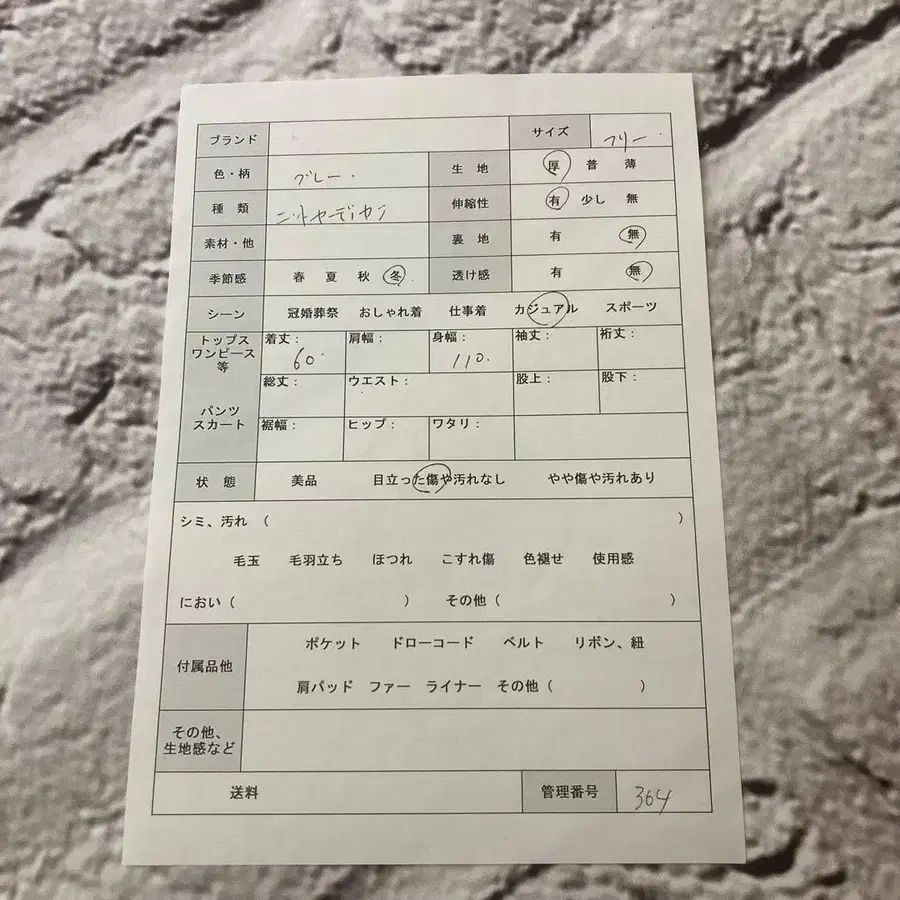 ブランド サイズ フリー
色・柄 グレー 生地 厚 普 薄
種類 ニットカーディガン 伸縮性 有 少し 無
素材・他 裏地 有 無
季節感 春 夏 秋 冬 透け感 有 無
シーン 冠婚葬祭 おしゃれ着 仕事着 カジュアル スポーツ
トップス
ワンピース
等
着丈: 60 肩幅: 身幅: 110 袖丈: 裄丈:
パンツ
スカート
総丈: ウエスト: 股上: 股下:
裾幅: ヒップ: ワタリ:
状態 美品 目立った傷や汚れなし やや傷や汚れあり
シミ、汚れ ( )
毛玉 毛羽立ち ほつれ こすれ傷 色褪せ 使用感
におい ( ) その他 ( )
付属品他 ポケット ドローコード ベルト リボン、紐
肩パッド ファー ライナー その他 ( )
その他、
生地感など
送料 管理番号 364